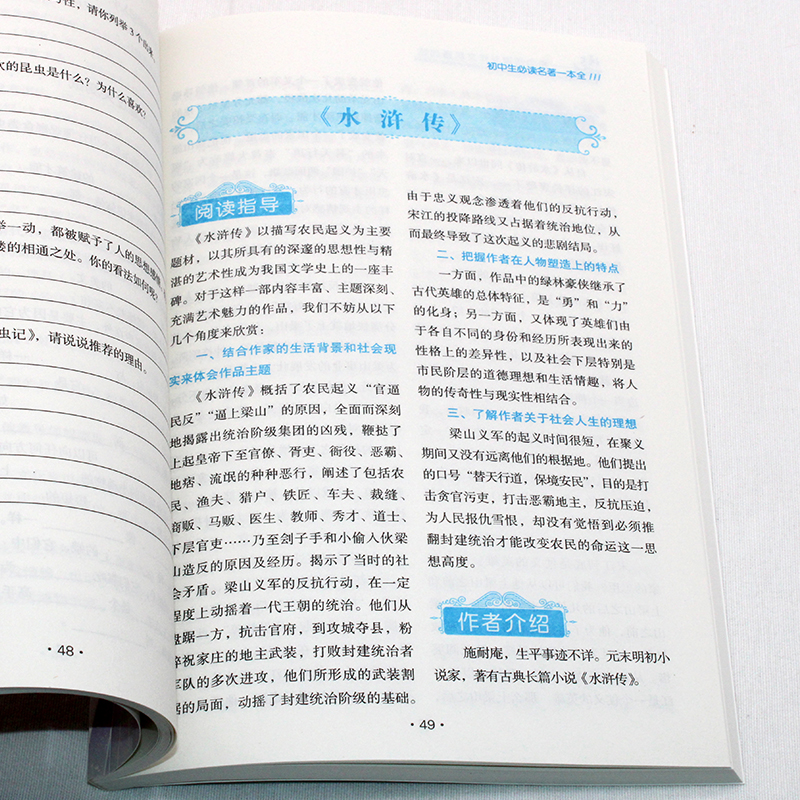 性，请你列举3个出来。
欢的昆虫是什么？为什么喜欢？
举一动，都被赋予了人的思想感情
娄的相通之处。你的看法如何呢？
虫记》，请说说推荐的理由。
·48·
初中生必读名著一本全
《水浒传》
阅读指导
《水浒传》以描写农民起义为主要
题材，以其所具有的深邃的思想性与精
湛的艺术性成为我国文学史上的一座丰
碑。对于这样一部内容丰富、主题深刻、
充满艺术魅力的作品，我们不妨从以下
几个角度来欣赏：
一、结合作家的生活背景和社会现
实来体会作品主题
《水浒传》概括了农民起义“官逼
民反”“逼上梁山”的原因，全面而深刻
地揭露出统治阶级集团的凶残，鞭挞了
上起皇帝下至官僚、胥吏、衙役、恶霸、
地痞、流氓的种种恶行，阐述了包括农
民、渔夫、猎户、铁匠、车夫、裁缝、
商贩、马贩、医生、教师、秀才、道士、
下层官吏……乃至刽子手和小偷入伙梁
山造反的原因及经历。揭示了当时的社
会矛盾。梁山义军的反抗行动，在一定
程度上动摇着一代王朝的统治。他们从
盘踞一方，抗击官府，到攻城夺县，粉
碎祝家庄的地主武装，打败封建统治者
军队的多次进攻，他们所形成的武装割
据的局面，动摇了封建统治阶级的基础。
由于忠义观念渗透着他们的反抗行动，
宋江的投降路线又占据着统治地位，从
而最终导致了这次起义的悲剧结局。
二、把握作者在人物塑造上的特点
一方面，作品中的绿林豪侠继承了
古代英雄的总体特征，是“勇”和“力”
的化身；另一方面，又体现了英雄们由
于各自不同的身份和经历所表现出来的
性格上的差异性，以及社会下层特别是
市民阶层的道德理想和生活情趣，将人
物的传奇性与现实性相结合。
三、了解作者关于社会人生的理想
梁山义军的起义时间很短，在聚义
期间又没有远离他们的根据地。他们提出
的口号“替天行道，保境安民”，目的是打
击贪官污吏，打击恶霸地主，反抗压迫，
为人民报仇雪恨，却没有觉悟到必须推
翻封建统治才能改变农民的命运这一思
想高度。
作者介绍
施耐庵，生平事迹不详。元末明初小
说家，著有古典长篇小说《水浒传》。
·49·